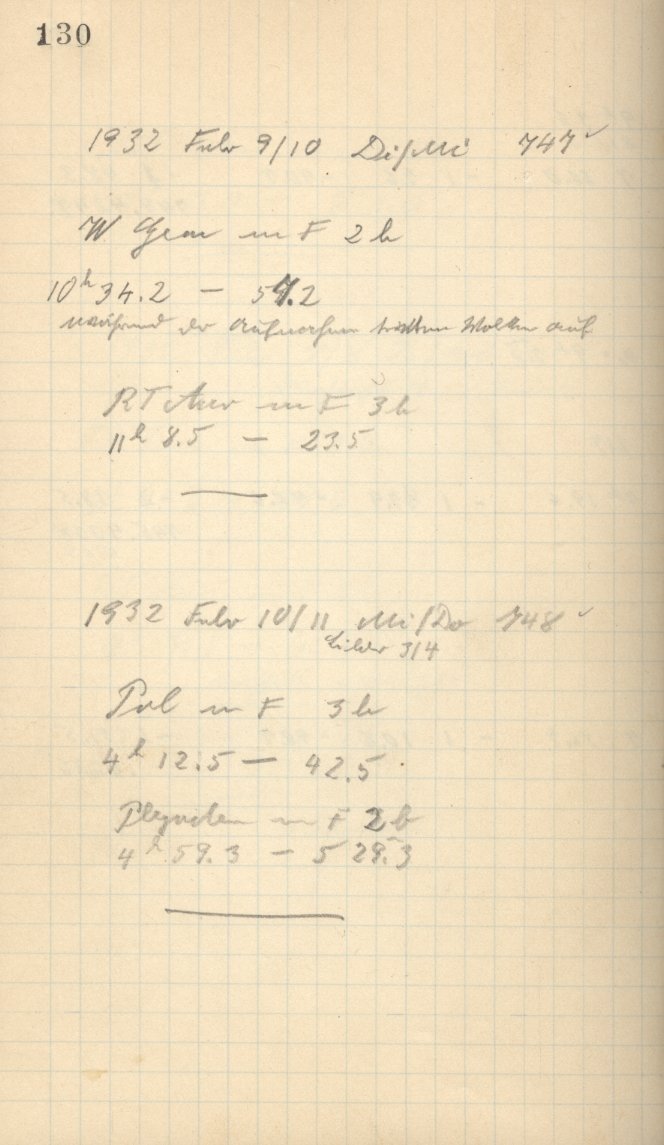 130
1932 Febr 9/10 Di/Mi 747 ✓
W Gem m F 2 h
10h 34.2 — 57.2
während der Aufnahme treten Wolken auf
RT Aur m F 3 h
11h 8.5 — 23.5
1932 Febr 10/11 Mi/Do 748 ✓
Bilder 3/4
Pol m F 3 h
4h 12.5 — 42.5
Plejaden m F 2 h
4h 59.3 — 5 29.3